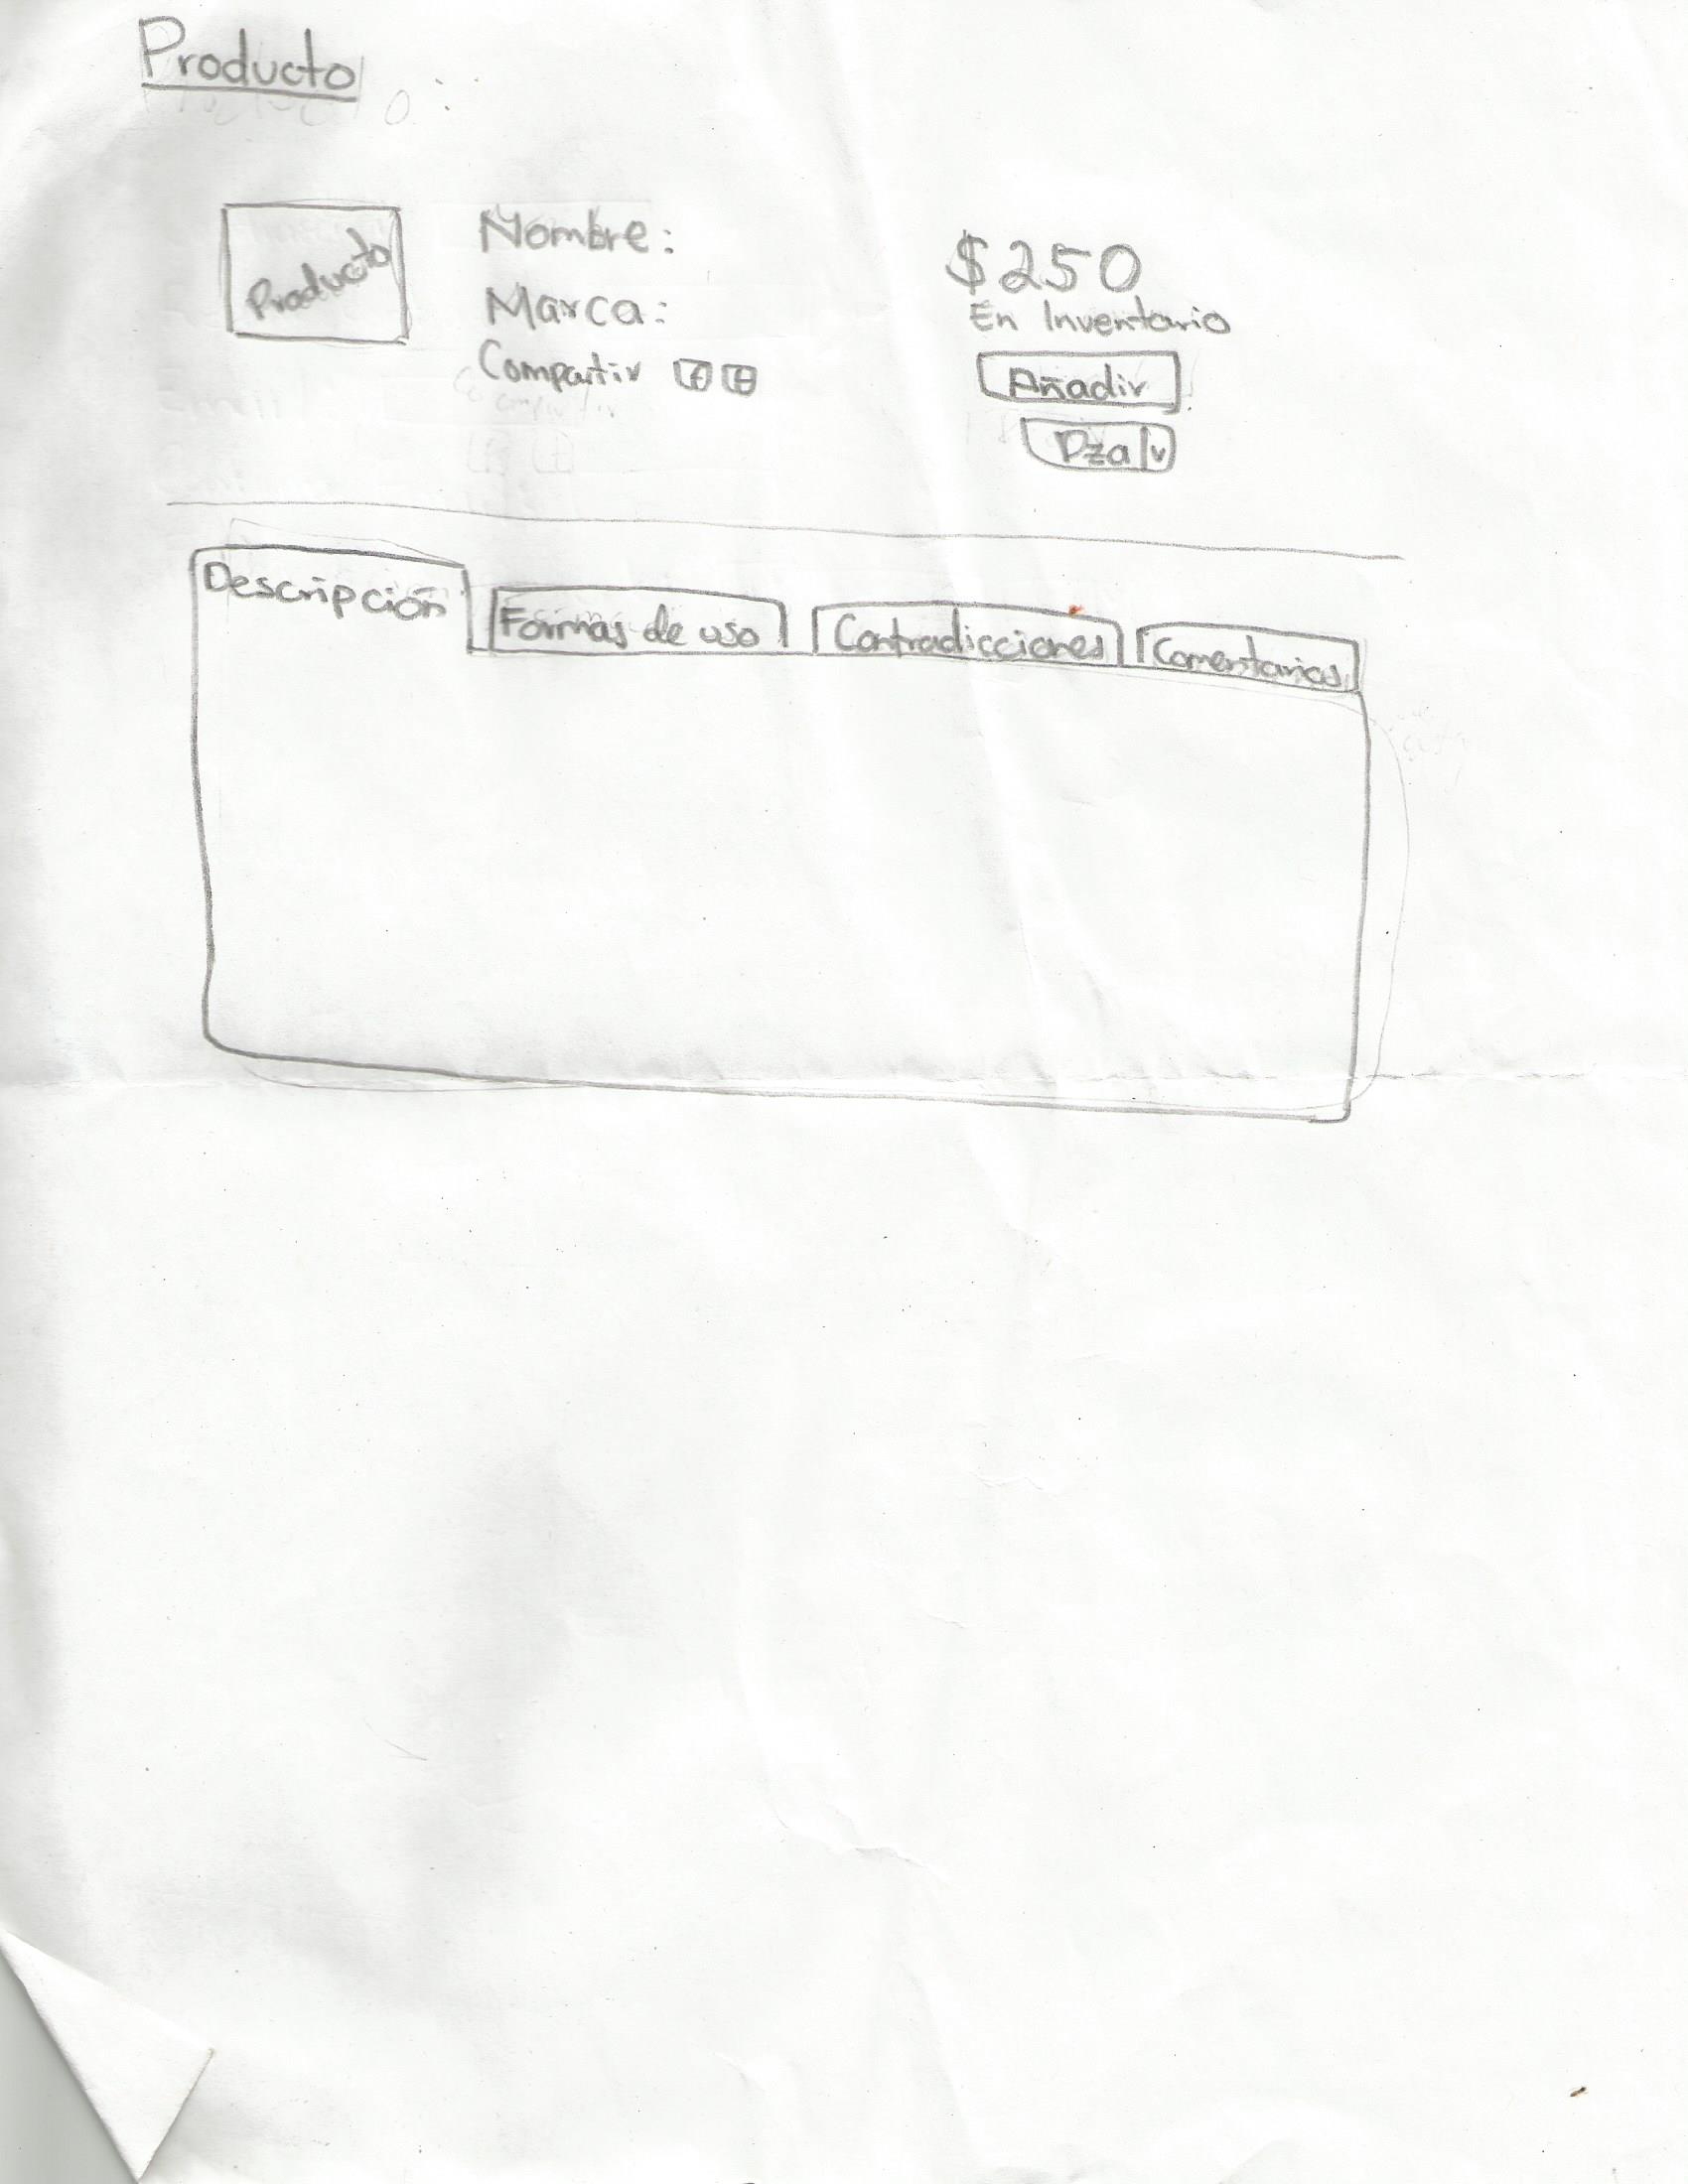 Producto
Producto
Nombre:
Marca:
Compartir
$250
En Inventario
Añadir
Pza v
Descripción
Formas de uso
Contradicciones
Comentarios